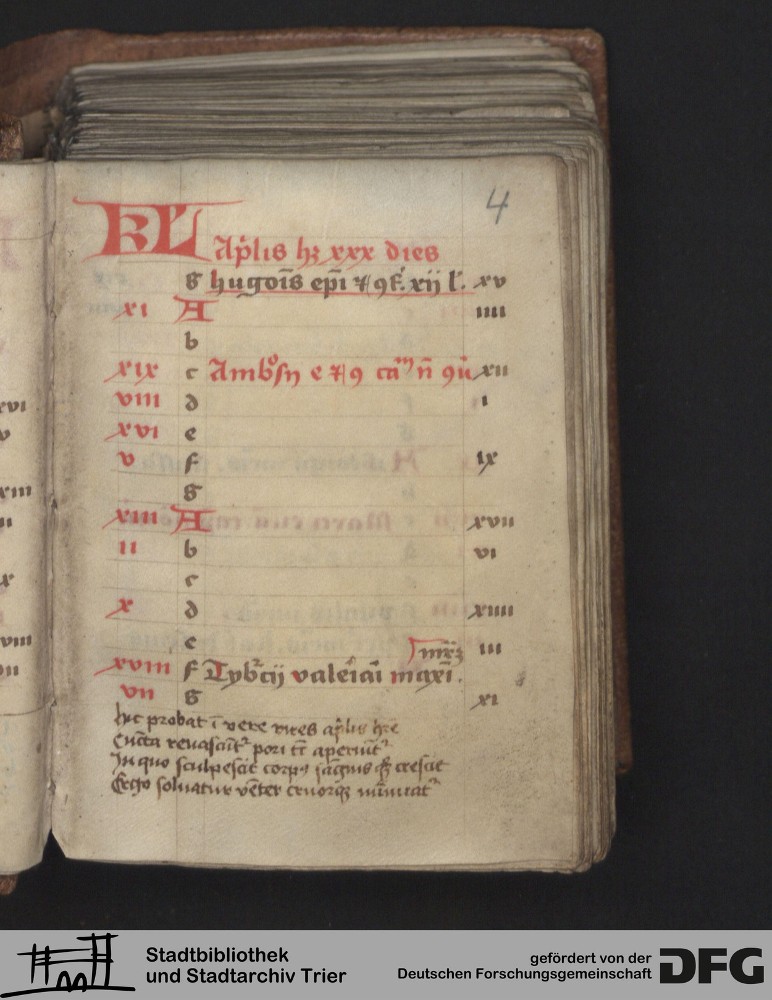 4
KL Ap̄lis hꝫ xxx dies
g hugoīs epī ⁊ ꝯf. xij l'. xv
xi A iiii
b
xix c Ambͦsij e ⁊ ꝯ xii
viii d i
xvi e
v f ix
g
xiii A xvii
ii b vi
c
x d xiiii
e mr̄ꝫ iii
xviii f Tyburcij valeriāi maxī.
vii g xi
hic probat ī vere vires ap̄lis hr̄e
Cuncta renascūt᷑ pori tr̄ aperiūt᷑
In quo sculpescit corpꝰ sāgnis qꝫ crescit
Ergo soluatur vēter cruorqꝫ minuat᷑
Stadtbibliothek
und Stadtarchiv Trier
gefördert von der
Deutschen Forschungsgemeinschaft
DFG